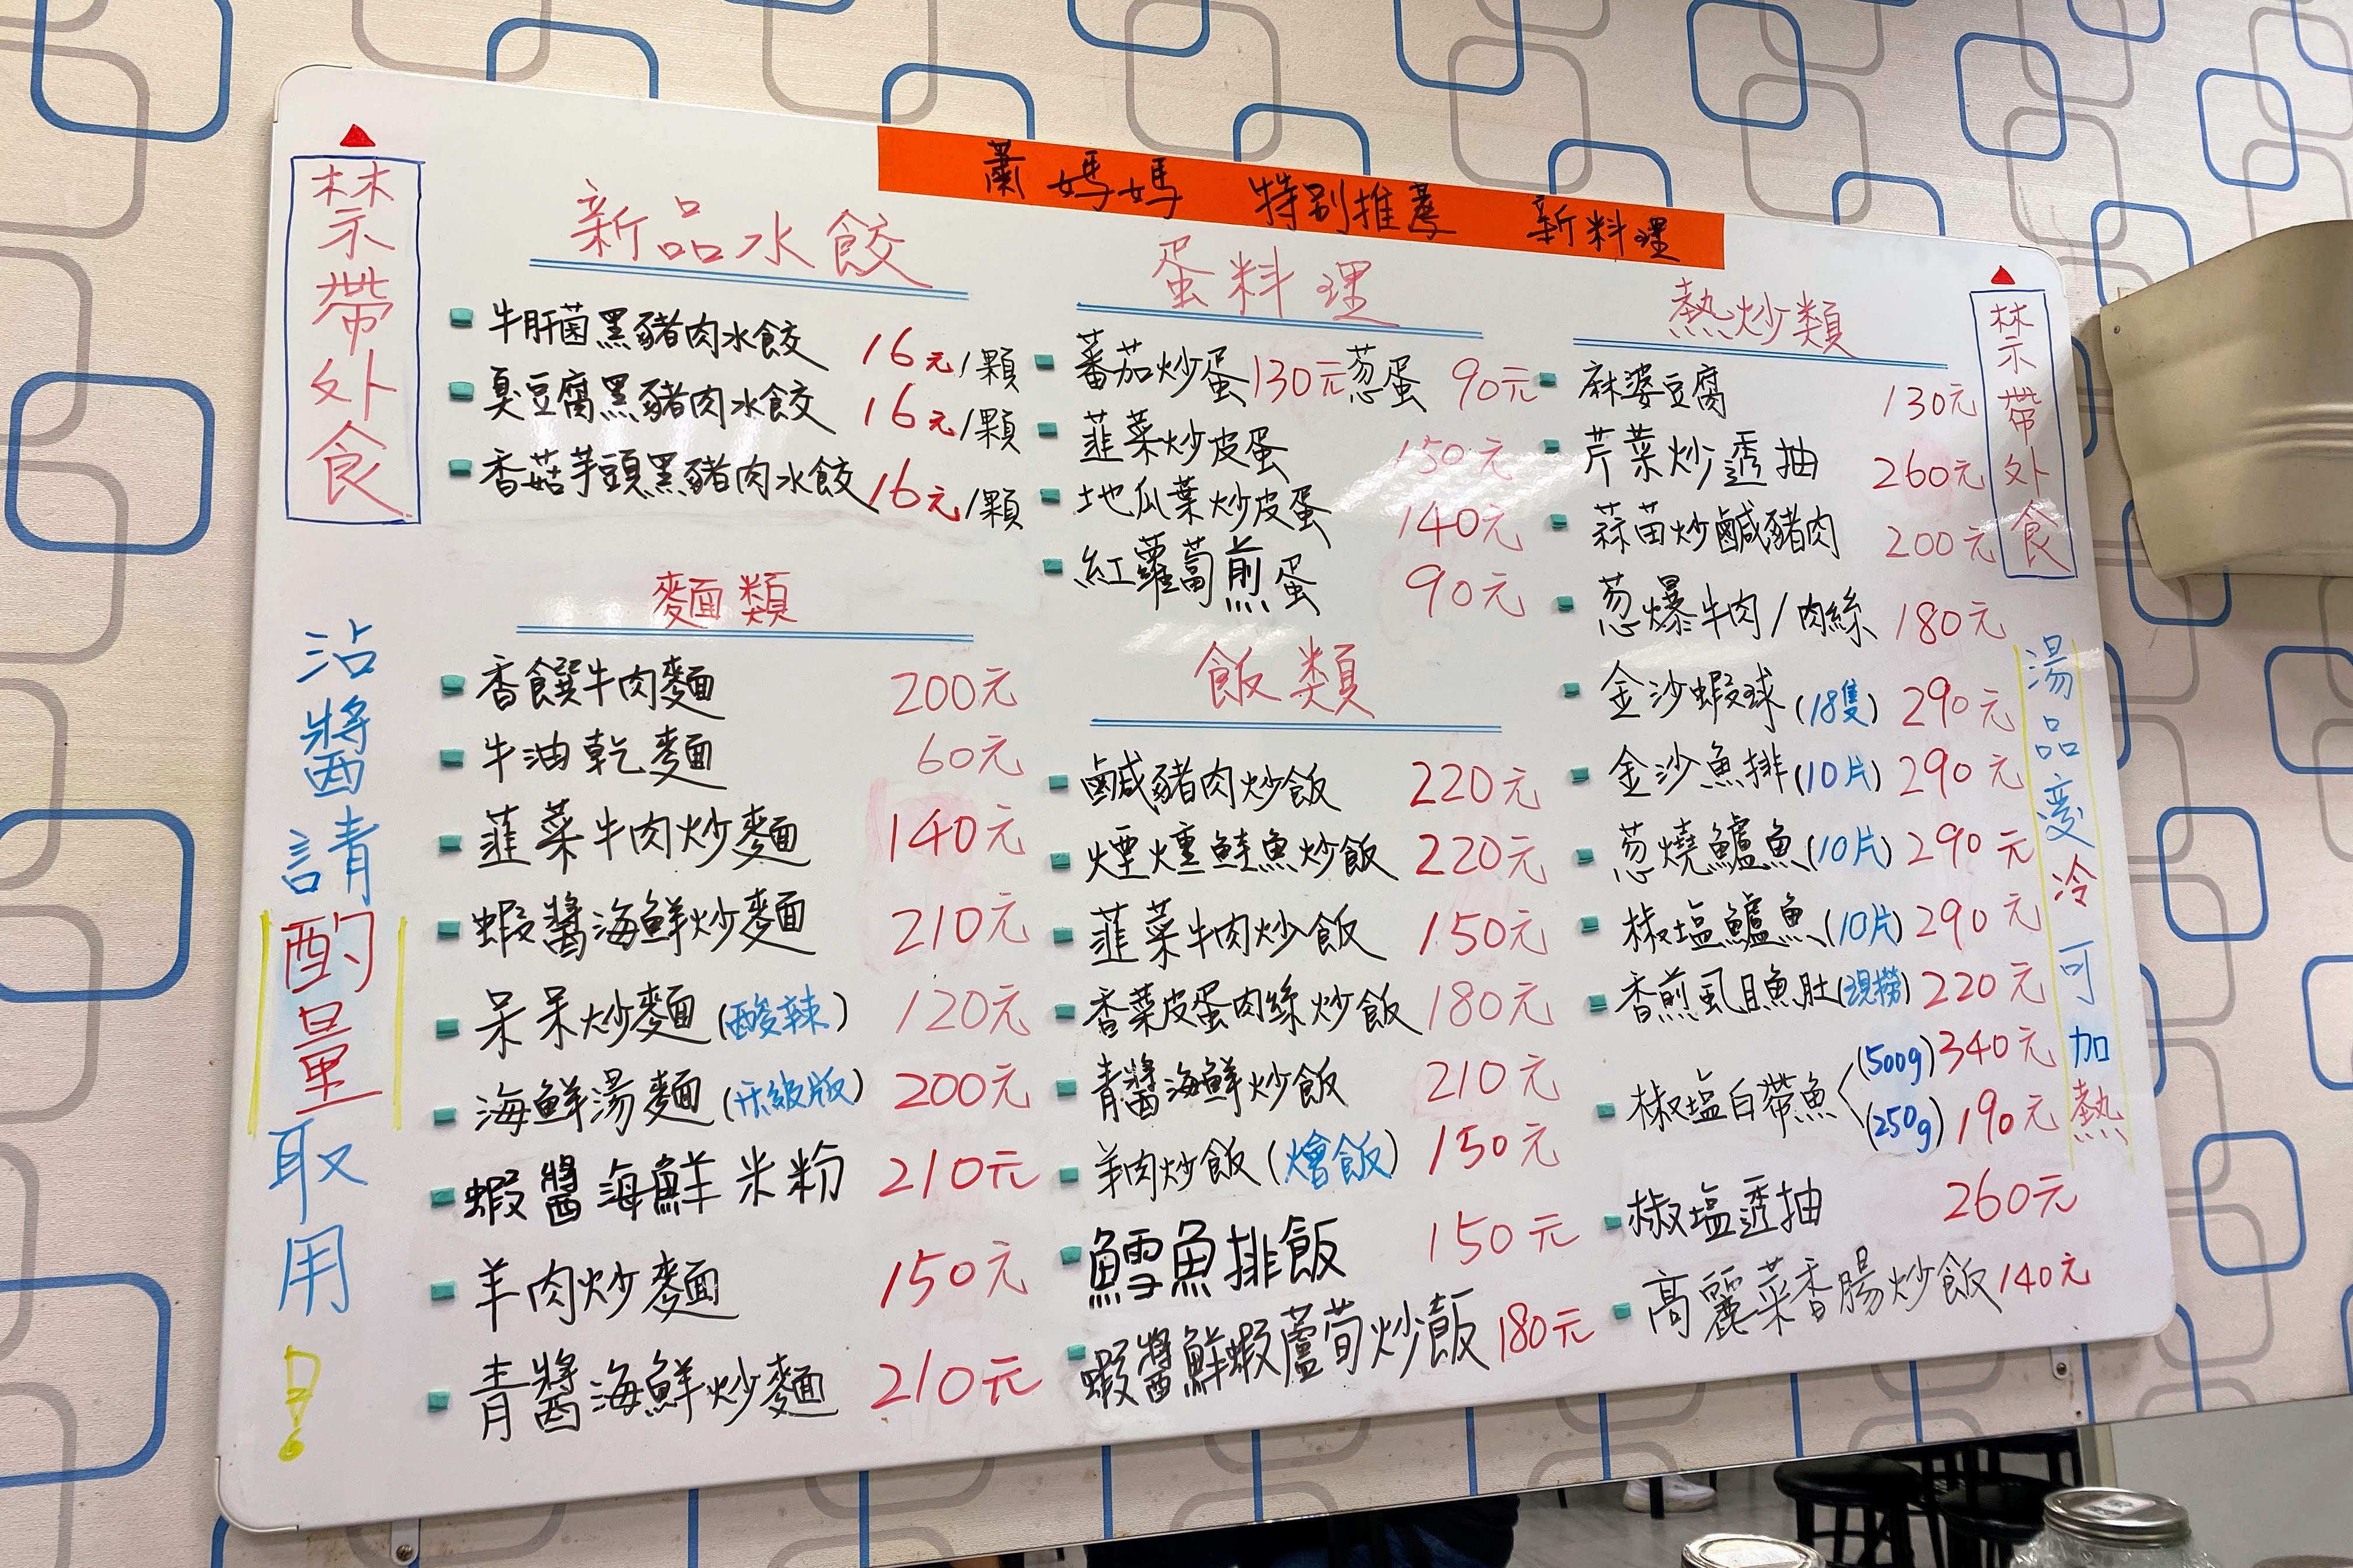 蕭媽媽 特別推薦 新料理
禁帶外食
沾醬請酌量取用!
新品水餃
牛肝菌黑豬肉水餃 16元/顆
臭豆腐黑豬肉水餃 16元/顆
香菇芋頭黑豬肉水餃 16元/顆
麵類
香饌牛肉麵 200元
牛油乾麵 60元
韮菜牛肉炒麵 140元
蝦醬海鮮炒麵 210元
呆呆炒麵(酸辣) 120元
海鮮湯麵(升級版) 200元
蝦醬海鮮米粉 210元
羊肉炒麵 150元
青醬海鮮炒麵 210元
蛋料理
蕃茄炒蛋130元 葱蛋 90元
韮菜炒皮蛋 150元
地瓜葉炒皮蛋 140元
紅蘿蔔煎蛋 90元
飯類
鹹豬肉炒飯 220元
煙燻鮭魚炒飯 220元
韮菜牛肉炒飯 150元
香菜皮蛋肉絲炒飯 180元
青醬海鮮炒飯 210元
羊肉炒飯(燴飯) 150元
鱈魚排飯 150元
蝦醬鮮蝦蘆筍炒飯 180元
熱炒類
麻婆豆腐 130元
芹菜炒透抽 260元
蒜苗炒鹹豬肉 200元
葱爆牛肉/肉絲 180元
金沙蝦球(18隻) 290元
金沙魚排(10片) 290元
葱燒鱸魚(10片) 290元
椒塩鱸魚(10片) 290元
香煎虱目魚肚(現撈) 220元
椒塩白帶魚 (500g) 340元
(250g) 190元
椒塩透抽 260元
高麗菜香腸炒飯 140元
禁帶外食
湯品變冷可加熱